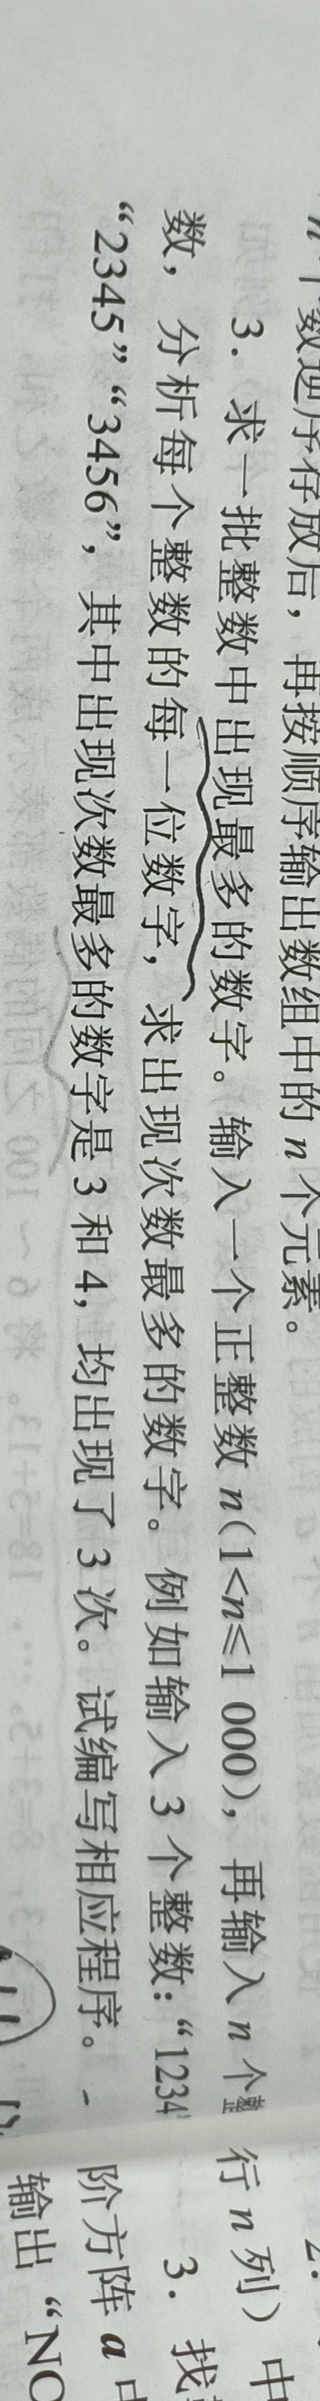 个数逆序存放后，再按顺序输出数组中的 n 个元素。
3. 求一批整数中出现最多的数字。输入一个正整数 n(1<n≤1 000)，再输入 n 个整
数，分析每个整数的每一位数字，求出现次数最多的数字。例如输入 3 个整数：“1234
“2345”“3456”，其中出现次数最多的数字是 3 和 4，均出现了 3 次。试编写相应程序。
行 n 列）中
3. 找
阶方阵 a 中
输出“NO